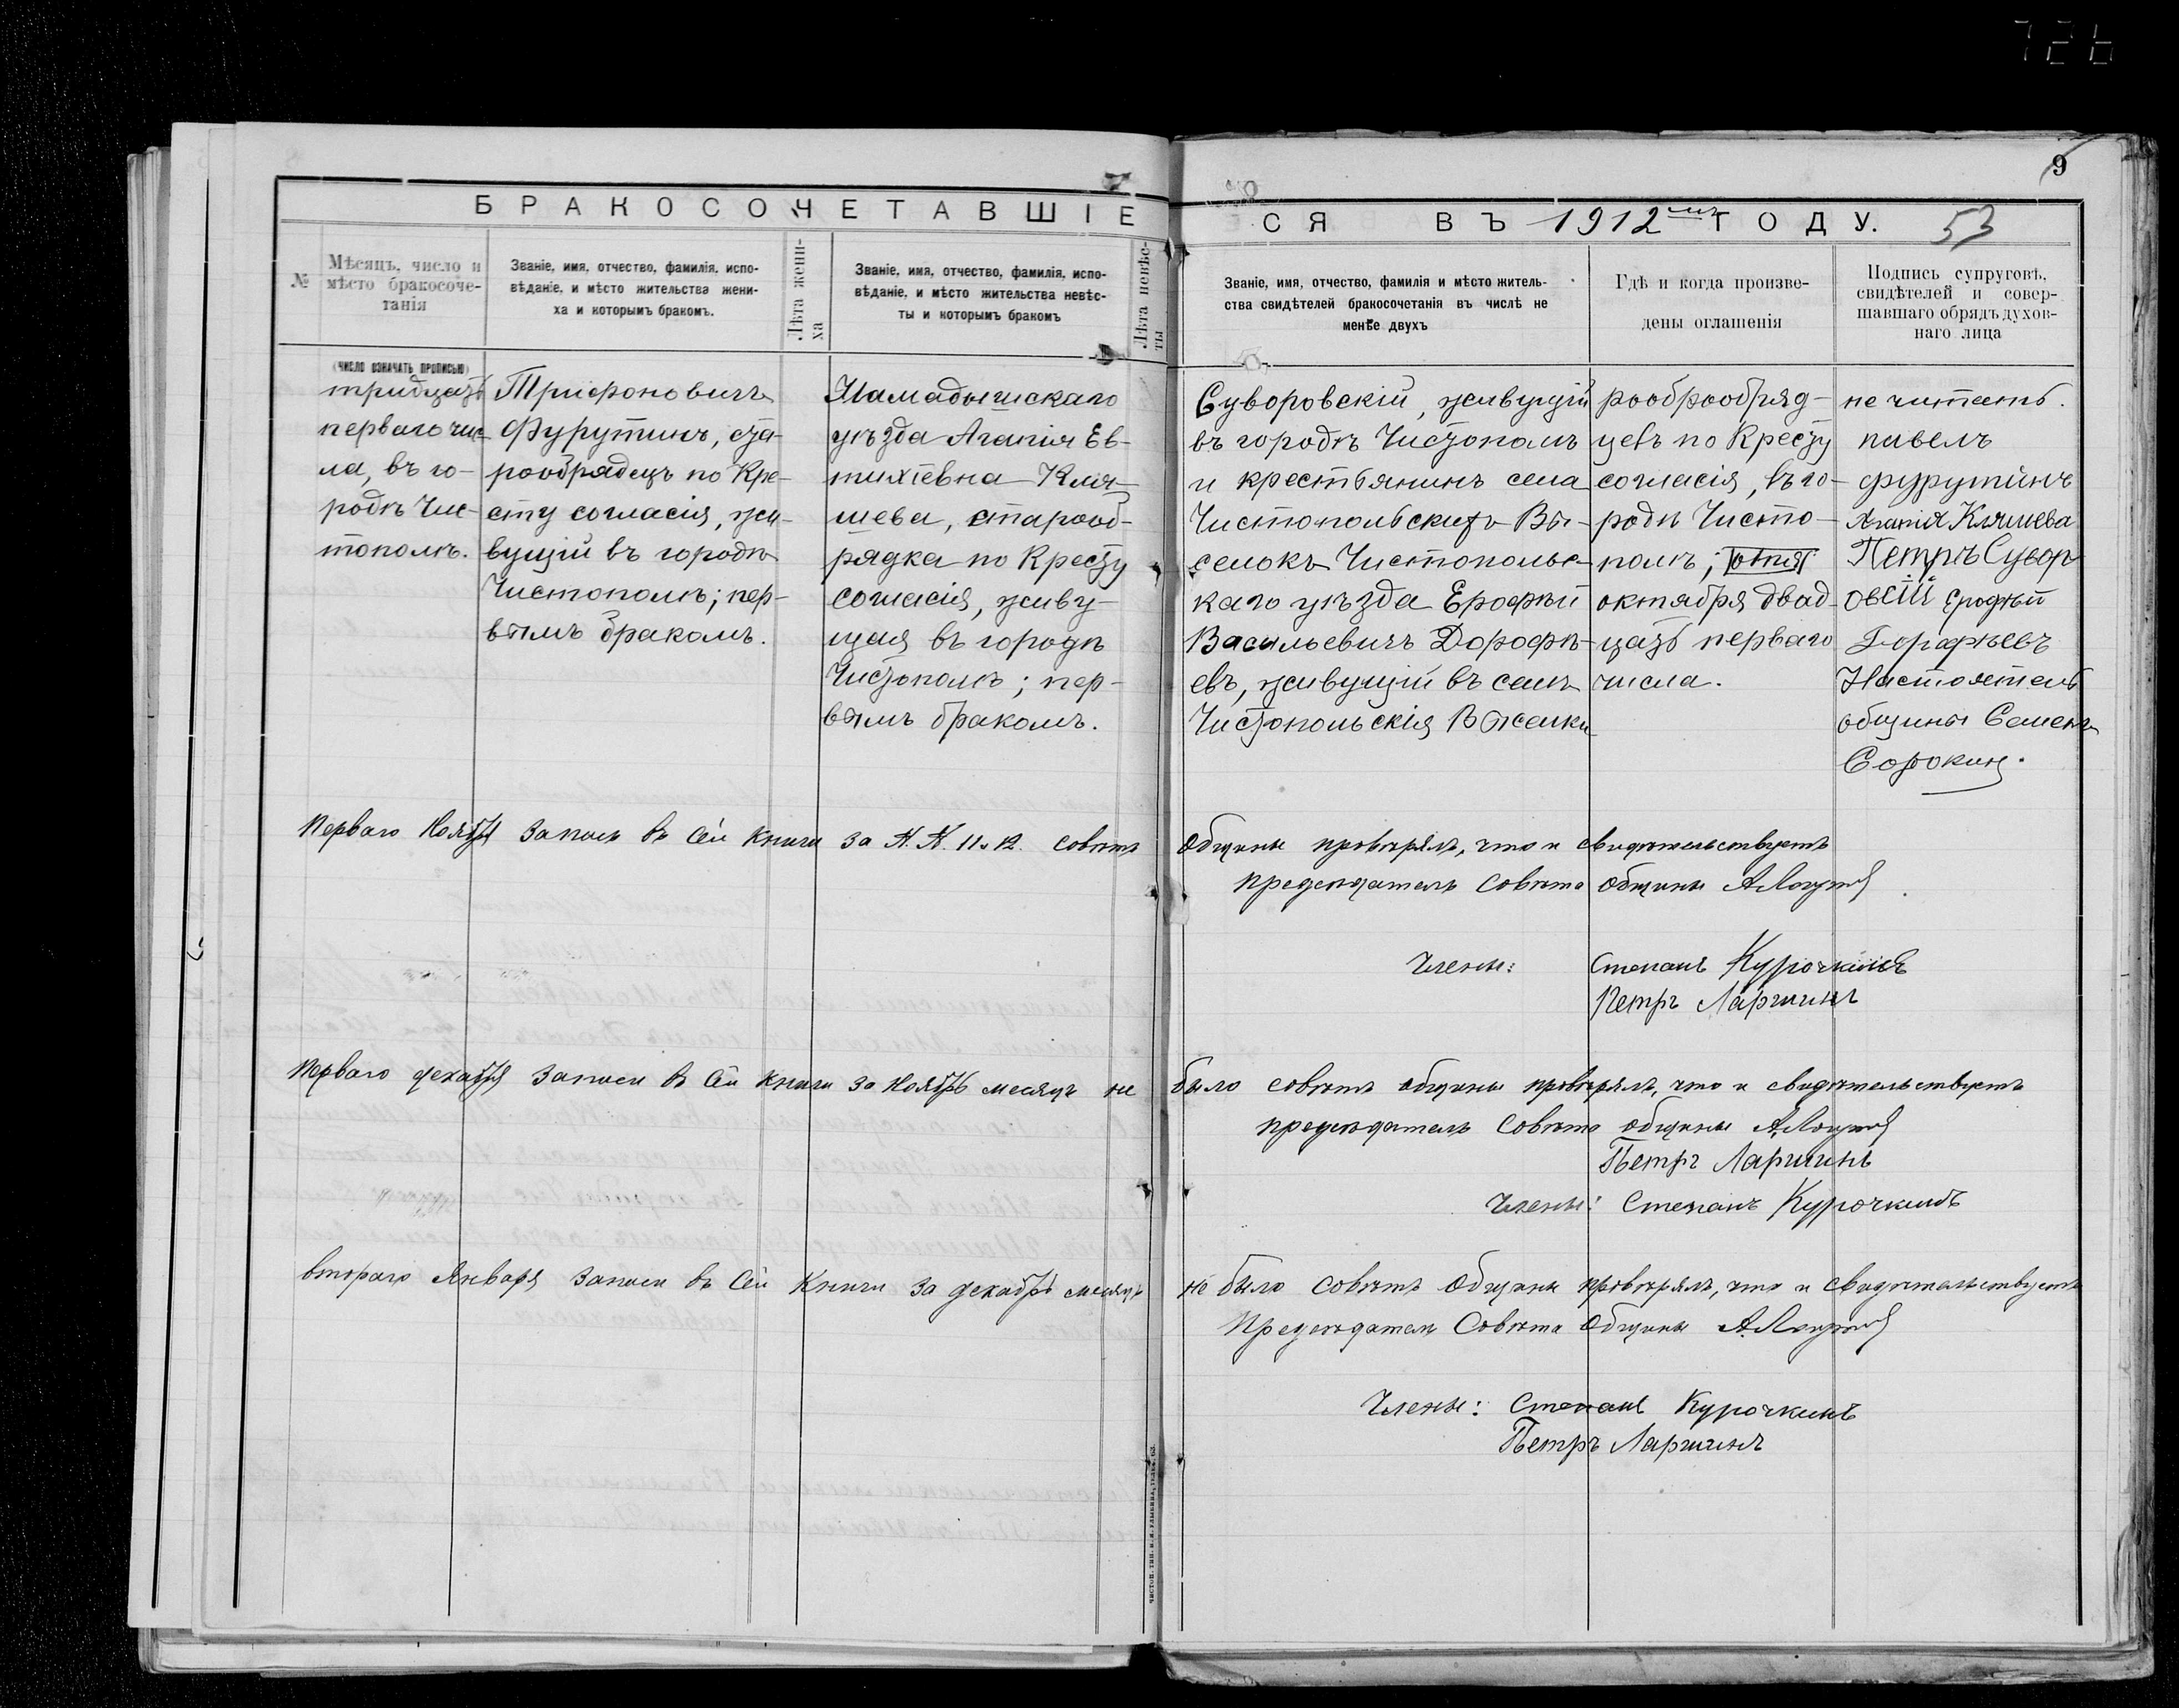 9
БРАКОСОЧЕТАВШІЕ
СЯ ВЪ 1912 ГОДУ.
53
№
Мѣсяцъ, число и
мѣсто бракосоче-
танія
Званіе, имя, отчество, фамилія, испо-
вѣданіе, и мѣсто жительства жени-
ха и которымъ бракомъ.
Лѣта жени-
ха
Званіе, имя, отчество, фамилія, испо-
вѣданіе, и мѣсто жительства невѣс-
ты и которымъ бракомъ
Лѣта невѣс-
ты
Званіе, имя, отчество, фамилія и мѣсто житель-
ства свидѣтелей бракосочетанія въ числѣ не
менѣе двухъ
Гдѣ и когда произве-
дены оглашенія
Подпись супруговъ,
свидѣтелей и совер-
шавшаго обрядъ духов-
наго лица
(ЧИСЛО ОЗНАЧАТЬ ПРОПИСЬЮ)
тридцать
перваго чис-
ла, въ го-
родѣ Чис-
тополѣ.
Трифоновичъ
Фурутинъ, ста-
рообрядецъ по Кре-
сту согласія, жи-
вущій въ городѣ
Чистополѣ; пер-
вымъ бракомъ.
Мамадышскаго
уѣзда Агапія Ев-
тихіевна Кля-
шева, старооб-
рядка по Кресту
согласія, живу-
щая въ городѣ
Чистополѣ; пер-
вымъ бракомъ.
Суворовскій, живущій
въ городѣ Чистополѣ
и крестьянинъ села
Чистопольскихъ Вы-
селокъ Чистопольс-
каго уѣзда Ерофѣй
Васильевичъ Дорофѣ-
евъ, живущій въ селѣ
Чистопольскія Выселки
рооброобряд-
цевъ по Кресту
согласія, въ го-
родѣ Чисто-
полѣ;
октября двад-
цать перваго
числа.
не читать.
павелъ
фурутинъ
Агапія Кляшева
Петръ Сувор
овсій Ерофѣй
Дорофѣевъ
Настоятель
общины Семенъ
Сорокинъ.
Перваго Ноября записи въ сей книги за №.№. 11 и 12. совѣтъ
общины провѣрялъ, что и свидѣтельствуетъ
предсѣдатель совѣта общины
Члены: Степанъ Курочкинъ
Петръ Ларшинъ
Перваго декабря записи въ сей книги за Ноябрь месяцъ не
было совѣтъ общины провѣрялъ, что и свидѣтельствуетъ
предсѣдатель совѣта общины
Петръ Ларшинъ
Члены: Степанъ Курочкинъ
втораго Января записи въ сей книги за декабрь месяцъ
не было совѣтъ общины провѣрялъ, что и свидѣтельствуетъ
Предсѣдатель Совѣта общины
Члены: Степанъ Курочкинъ
Петръ Ларшинъ